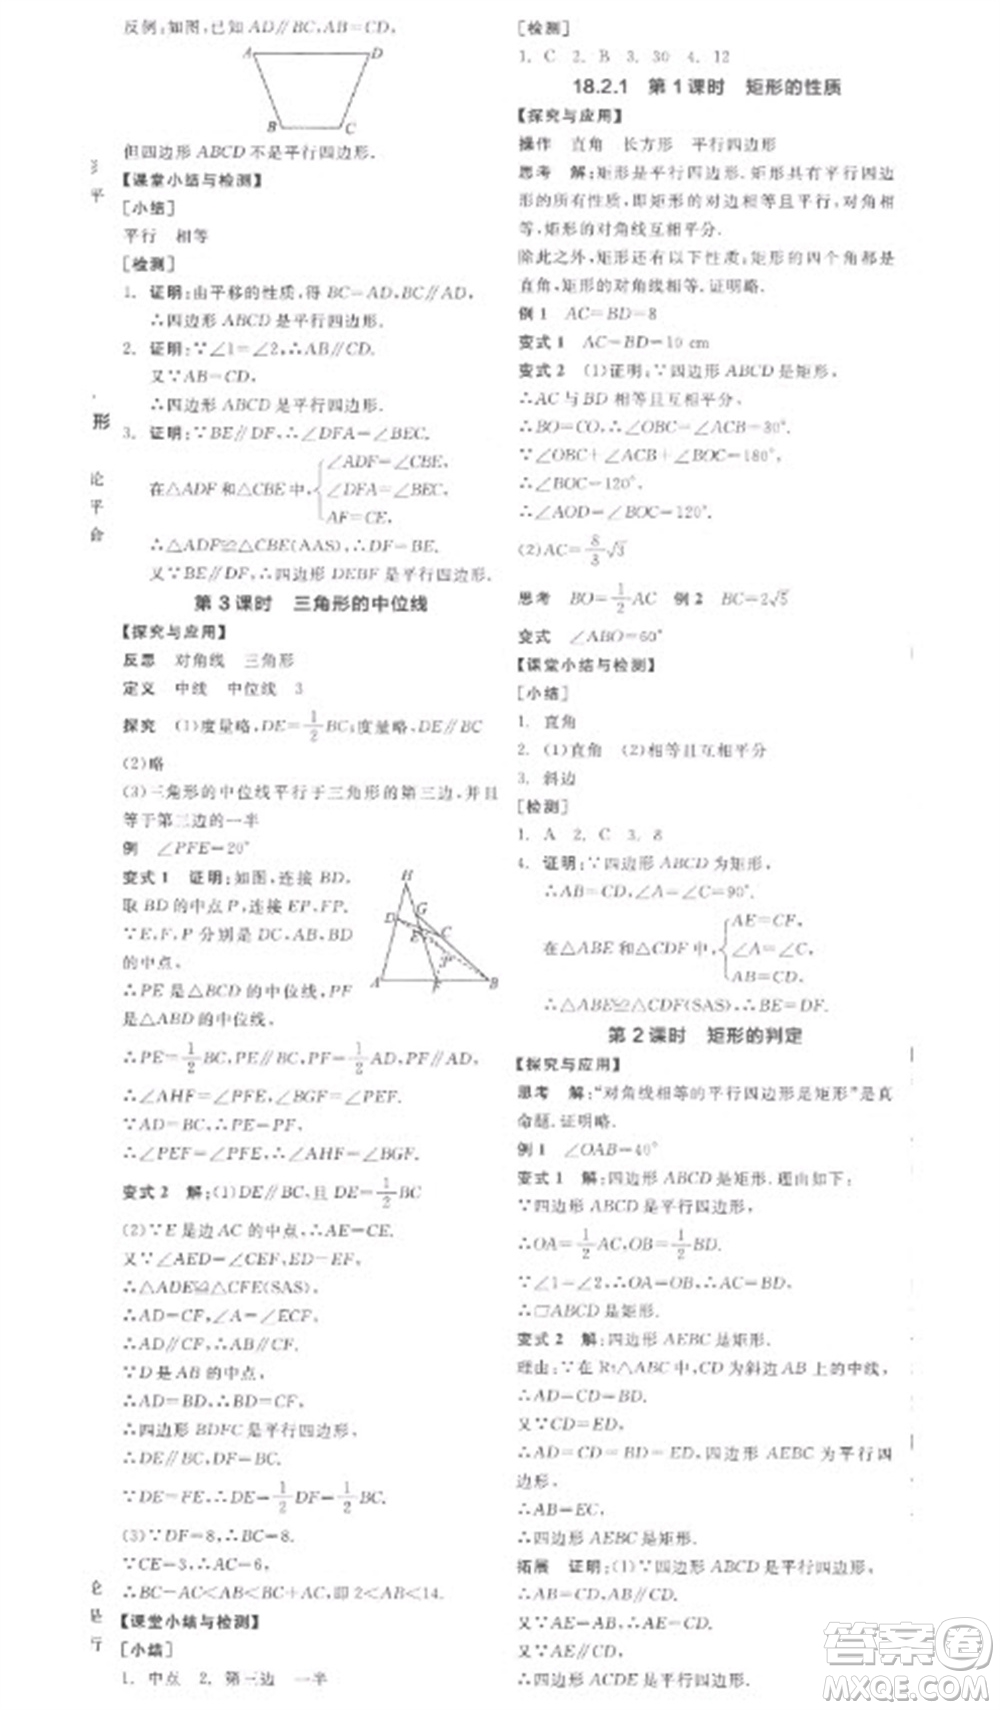 反例:如图,已知 AD∥BC,AB=CD,
A D
B C
但四边形 ABCD 不是平行四边形.
平
【课堂小结与检测】
[小结]
平行 相等
[检测]
1. 证明:由平移的性质,得 BC=AD,BC∥AD,
∴四边形 ABCD 是平行四边形.
2. 证明:∵∠1=∠2,∴AB∥CD.
又∵AB=CD,
∴四边形 ABCD 是平行四边形.
形
3. 证明:∵BE∥DF,∴∠DFA=∠BEC.
∠ADF=∠CBE,
论
在△ADF 和△CBE 中, ∠DFA=∠BEC,
平
AF=CE,
命
∴△ADF≌△CBE(AAS),∴DF=BE.
又∵BE∥DF,∴四边形 DEBF 是平行四边形.
第 3 课时 三角形的中位线
【探究与应用】
反思 对角线 三角形
定义 中线 中位线 3
探究 (1)度量略,DE=1/2BC;度量略,DE∥BC
(2)略
(3)三角形的中位线平行于三角形的第三边,并且
等于第三边的一半
例 ∠PFE=20°
变式 1 证明:如图,连接 BD,
取 BD 的中点 P,连接 EP,FP.
∵E,F,P 分别是 DC,AB,BD
的中点,
∴PE 是△BCD 的中位线,PF
是△ABD 的中位线,
H
G
D C
E
P
A F B
∴PE=1/2BC,PE∥BC,PF=1/2AD,PF∥AD,
∴∠AHF=∠PFE,∠BGF=∠PEF.
∵AD=BC,∴PE=PF,
∴∠PEF=∠PFE,∴∠AHF=∠BGF.
变式 2 解:(1)DE∥BC,且 DE=1/2BC
(2)∵E 是边 AC 的中点,∴AE=CE.
又∵∠AED=∠CEF,ED=EF,
∴△ADE≌△CFE(SAS),
∴AD=CF,∠A=∠ECF,
∴AD∥CF,∴AB∥CF.
∵D 是 AB 的中点,
∴AD=BD,∴BD=CF,
∴四边形 BDFC 是平行四边形,
∴DE∥BC,DF=BC.
∵DE=FE,∴DE=1/2DF=1/2BC.
(3)∵DF=8,∴BC=8.
∵CE=3,∴AC=6,
∴BC-AC<AB<BC+AC,即 2<AB<14.
【课堂小结与检测】
是
[小结]
行
1. 中点 2. 第三边 一半
[检测]
1. C 2. B 3. 30 4. 12
18.2.1 第 1 课时 矩形的性质
【探究与应用】
操作 直角 长方形 平行四边形
思考 解:矩形是平行四边形.矩形具有平行四边
形的所有性质,即矩形的对边相等且平行,对角相
等,矩形的对角线互相平分.
除此之外,矩形还有以下性质:矩形的四个角都是
直角,矩形的对角线相等.证明略.
例 1 AC=BD=8
变式 1 AC=BD=10 cm
变式 2 (1)证明:∵四边形 ABCD 是矩形,
∴AC 与 BD 相等且互相平分,
∴BO=CO,∴∠OBC=∠ACB=30°.
∵∠OBC+∠ACB+∠BOC=180°,
∴∠BOC=120°,
∴∠AOD=∠BOC=120°.
(2)AC=8/3√3
思考 BO=1/2AC 例 2 BC=2√5
变式 ∠ABO=60°
【课堂小结与检测】
[小结]
1. 直角
2. (1)直角 (2)相等且互相平分
3. 斜边
[检测]
1. A 2. C 3. 8
4. 证明:∵四边形 ABCD 为矩形,
∴AB=CD,∠A=∠C=90°.
AE=CF,
在△ABE 和△CDF 中, ∠A=∠C,
AB=CD,
∴△ABE≌△CDF(SAS),∴BE=DF.
第 2 课时 矩形的判定
【探究与应用】
思考 解:“对角线相等的平行四边形是矩形”是真
命题.证明略.
例 1 ∠OAB=40°
变式 1 解:四边形 ABCD 是矩形.理由如下:
∵四边形 ABCD 是平行四边形,
∴OA=1/2AC,OB=1/2BD.
∵∠1=∠2,∴OA=OB,∴AC=BD,
∴□ABCD 是矩形.
变式 2 解:四边形 AEBC 是矩形.
理由:∵在 Rt△ABC 中,CD 为斜边 AB 上的中线,
∴AD=CD=BD.
又∵CD=ED,
∴AD=CD=BD=ED,∴四边形 AEBC 为平行四
边形,
∴AB=EC,
∴四边形 AEBC 是矩形.
拓展 证明:(1)∵四边形 ABCD 是平行四边形,
∴AB∥CD,AB=CD.
又∵AE=AB,∴AE=CD.
又∵AE∥CD,
∴四边形 ACDE 是平行四边形.
答案圈
MXQE.COM